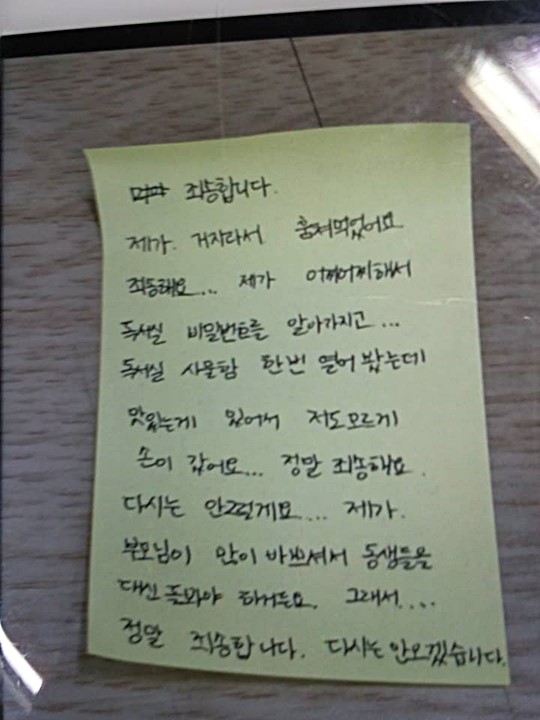 죄송합니다.
제가. 거지라서 훔쳐먹었어요
죄송해요... 제가 어찌어찌해서
독서실 비밀번호를 알아가지고...
독서실 사물함 한번 열어 봤는데
맛있는게 있어서 저도모르게
손이 갔어요... 정말 죄송해요.
다시는 안그럴게요... 제가.
부모님이 많이 바쁘셔서 동생들을
대신 돌봐야 하거든요. 그래서....
정말 죄송합니다. 다시는 안오겠습니다.